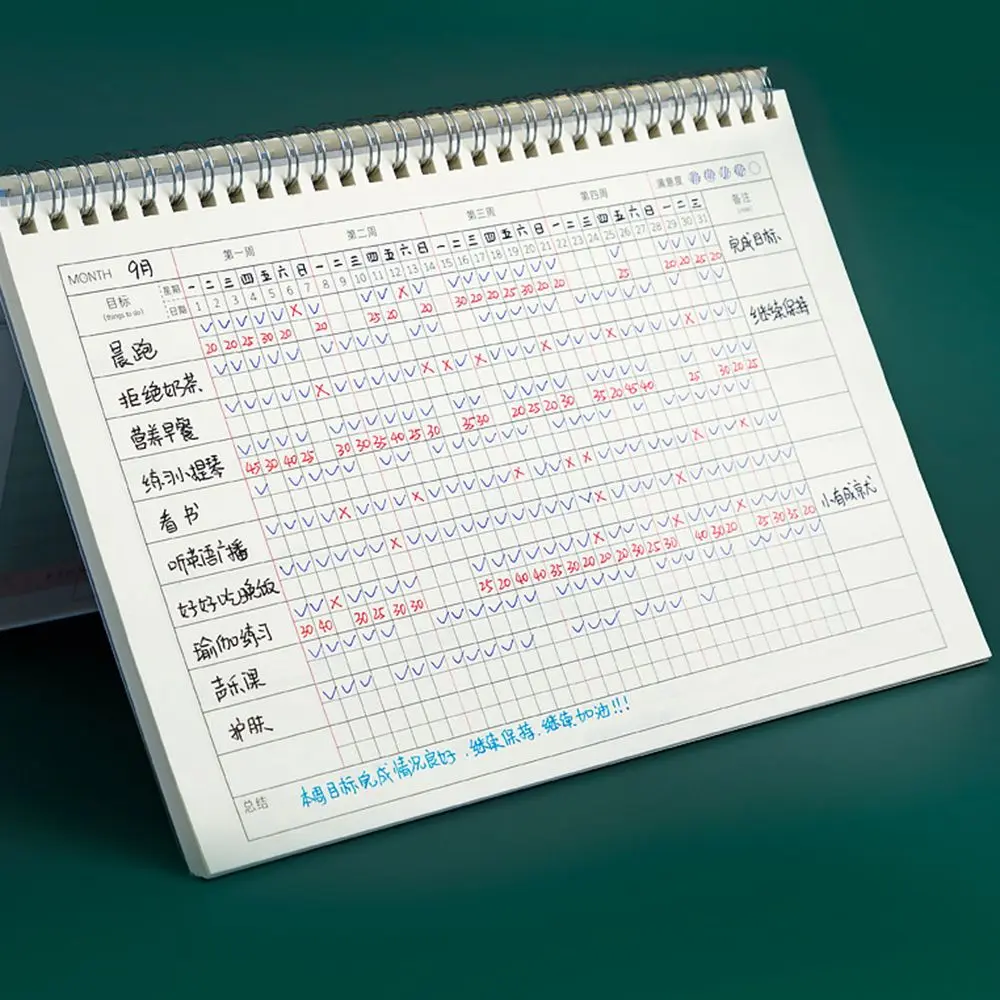 第一周 第二周 第三周 第四周 满意度
MONTH 9月 星期 一 二 三 四 五 六 日 一 二 三 四 五 六 日 一 二 三 四 五 六 日 一 二 三 四 五 六 日 一 二 三 备注
目标 日期 1 2 3 4 5 6 7 8 9 10 11 12 13 14 15 16 17 18 19 20 21 22 23 24 25 26 27 28 29 30 31
(things to do)
晨跑 完成目标
20 20 25 30 20 20 25 20 20 30 20 20 25 30 20 20 25 20 20 25 20
拒绝奶茶
营养早餐 继续保持
练习小提琴
45 30 40 25 30 30 35 40 25 30 35 30 20 25 20 30 35 20 45 40 25 30 20 25
看书
听英语广播
好好吃晚饭 小有成就
瑜伽练习
30 40 30 25 30 30 25 20 40 40 35 30 20 20 20 30 25 30 40 30 20 25 30 35 20
声乐课
护肤
总结 本周目标完成情况良好,继续保持,继续加油!!!